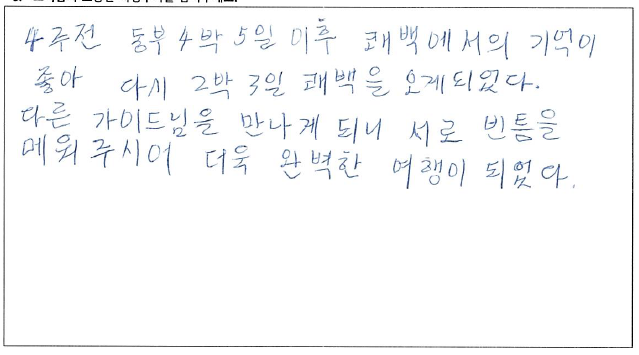 4주전 동부 4박 5일 이후 쾌백에서의 기억이
좋아 다시 2박 3일 쾌백을 오게되었다.
다른 가이드님을 만나게 되니 서로 빈틈을
메워주시어 더욱 완벽한 여행이 되었다.